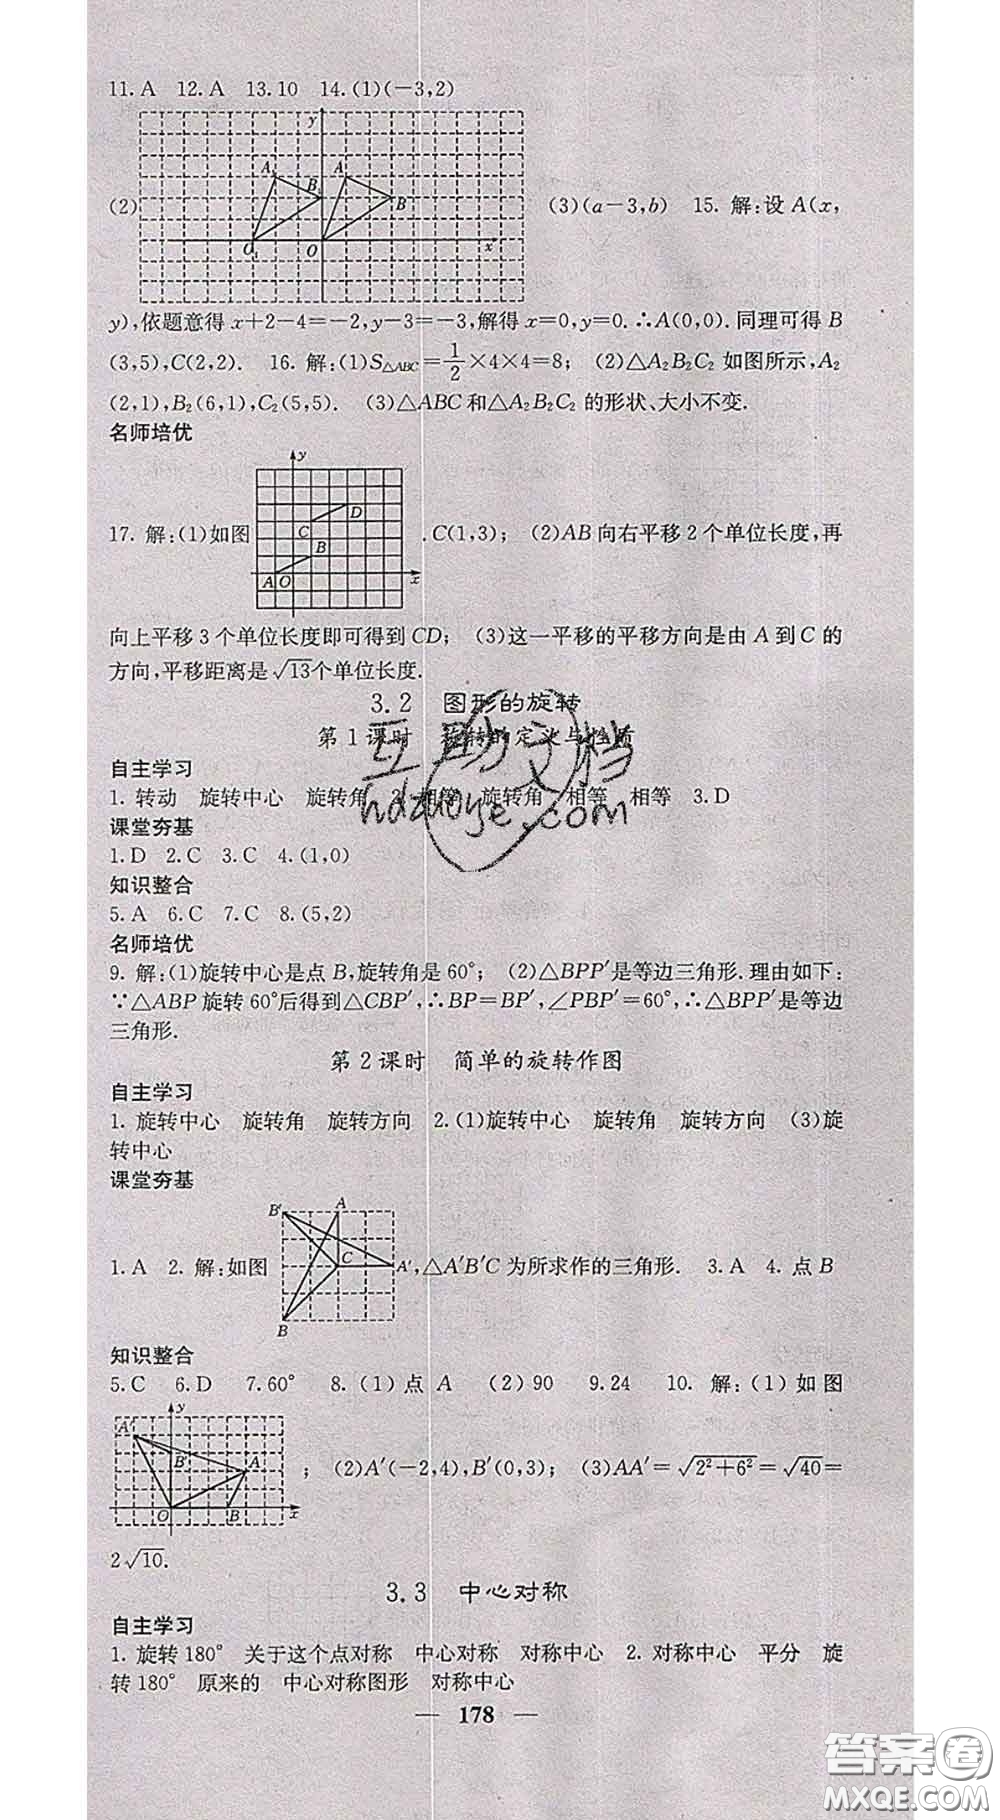 11. A 12. A 13. 10 14. (1)(−3,2)
(2) (3)(a−3,b) 15. 解:设 A(x,
y
A₁ A
B₁ B
O₁ O x
y),依题意得 x+2−4=−2,y−3=−3,解得 x=0,y=0.∴A(0,0).同理可得 B
(3,5),C(2,2). 16. 解:(1)S△ABC=1/2×4×4=8; (2)△A₂B₂C₂ 如图所示,A₂
(2,1),B₂(6,1),C₂(5,5). (3)△ABC 和△A₂B₂C₂ 的形状、大小不变.
名师培优
y
C D
B
A O x
17. 解:(1)如图 .C(1,3); (2)AB 向右平移 2 个单位长度,再
向上平移 3 个单位长度即可得到 CD; (3)这一平移的平移方向是由 A 到 C 的
方向,平移距离是√13个单位长度.
3.2 图形的旋转
第 1 课时 旋转的定义与性质
自主学习
1. 转动 旋转中心 旋转角 2. 相等 旋转角 相等 相等 3. D
课堂夯基
1. D 2. C 3. C 4. (1,0)
知识整合
5. A 6. C 7. C 8. (5,2)
名师培优
9. 解:(1)旋转中心是点 B,旋转角是 60°; (2)△BPP′是等边三角形.理由如下:
∵△ABP 旋转 60°后得到△CBP′,∴BP=BP′,∠PBP′=60°,∴△BPP′是等边
三角形.
第 2 课时 简单的旋转作图
自主学习
1. 旋转中心 旋转角 旋转方向 2. (1)旋转中心 旋转角 旋转方向 (3)旋
转中心
课堂夯基
B′ A
C
1. A 2. 解:如图 A′,△A′B′C 为所求作的三角形. 3. A 4. 点 B
B
知识整合
5. C 6. D 7. 60° 8. (1)点 A (2)90 9. 24 10. 解:(1)如图
y
A′
B′ A
; (2)A′(−2,4),B′(0,3); (3)AA′=√2²+6²=√40=
O B x
2√10.
3.3 中心对称
自主学习
1. 旋转 180° 关于这个点对称 中心对称 对称中心 2. 对称中心 平分 旋
转 180° 原来的 中心对称图形 对称中心
— 178 —
互助文档
hdzuoye.com
答案圈
MXQE.COM